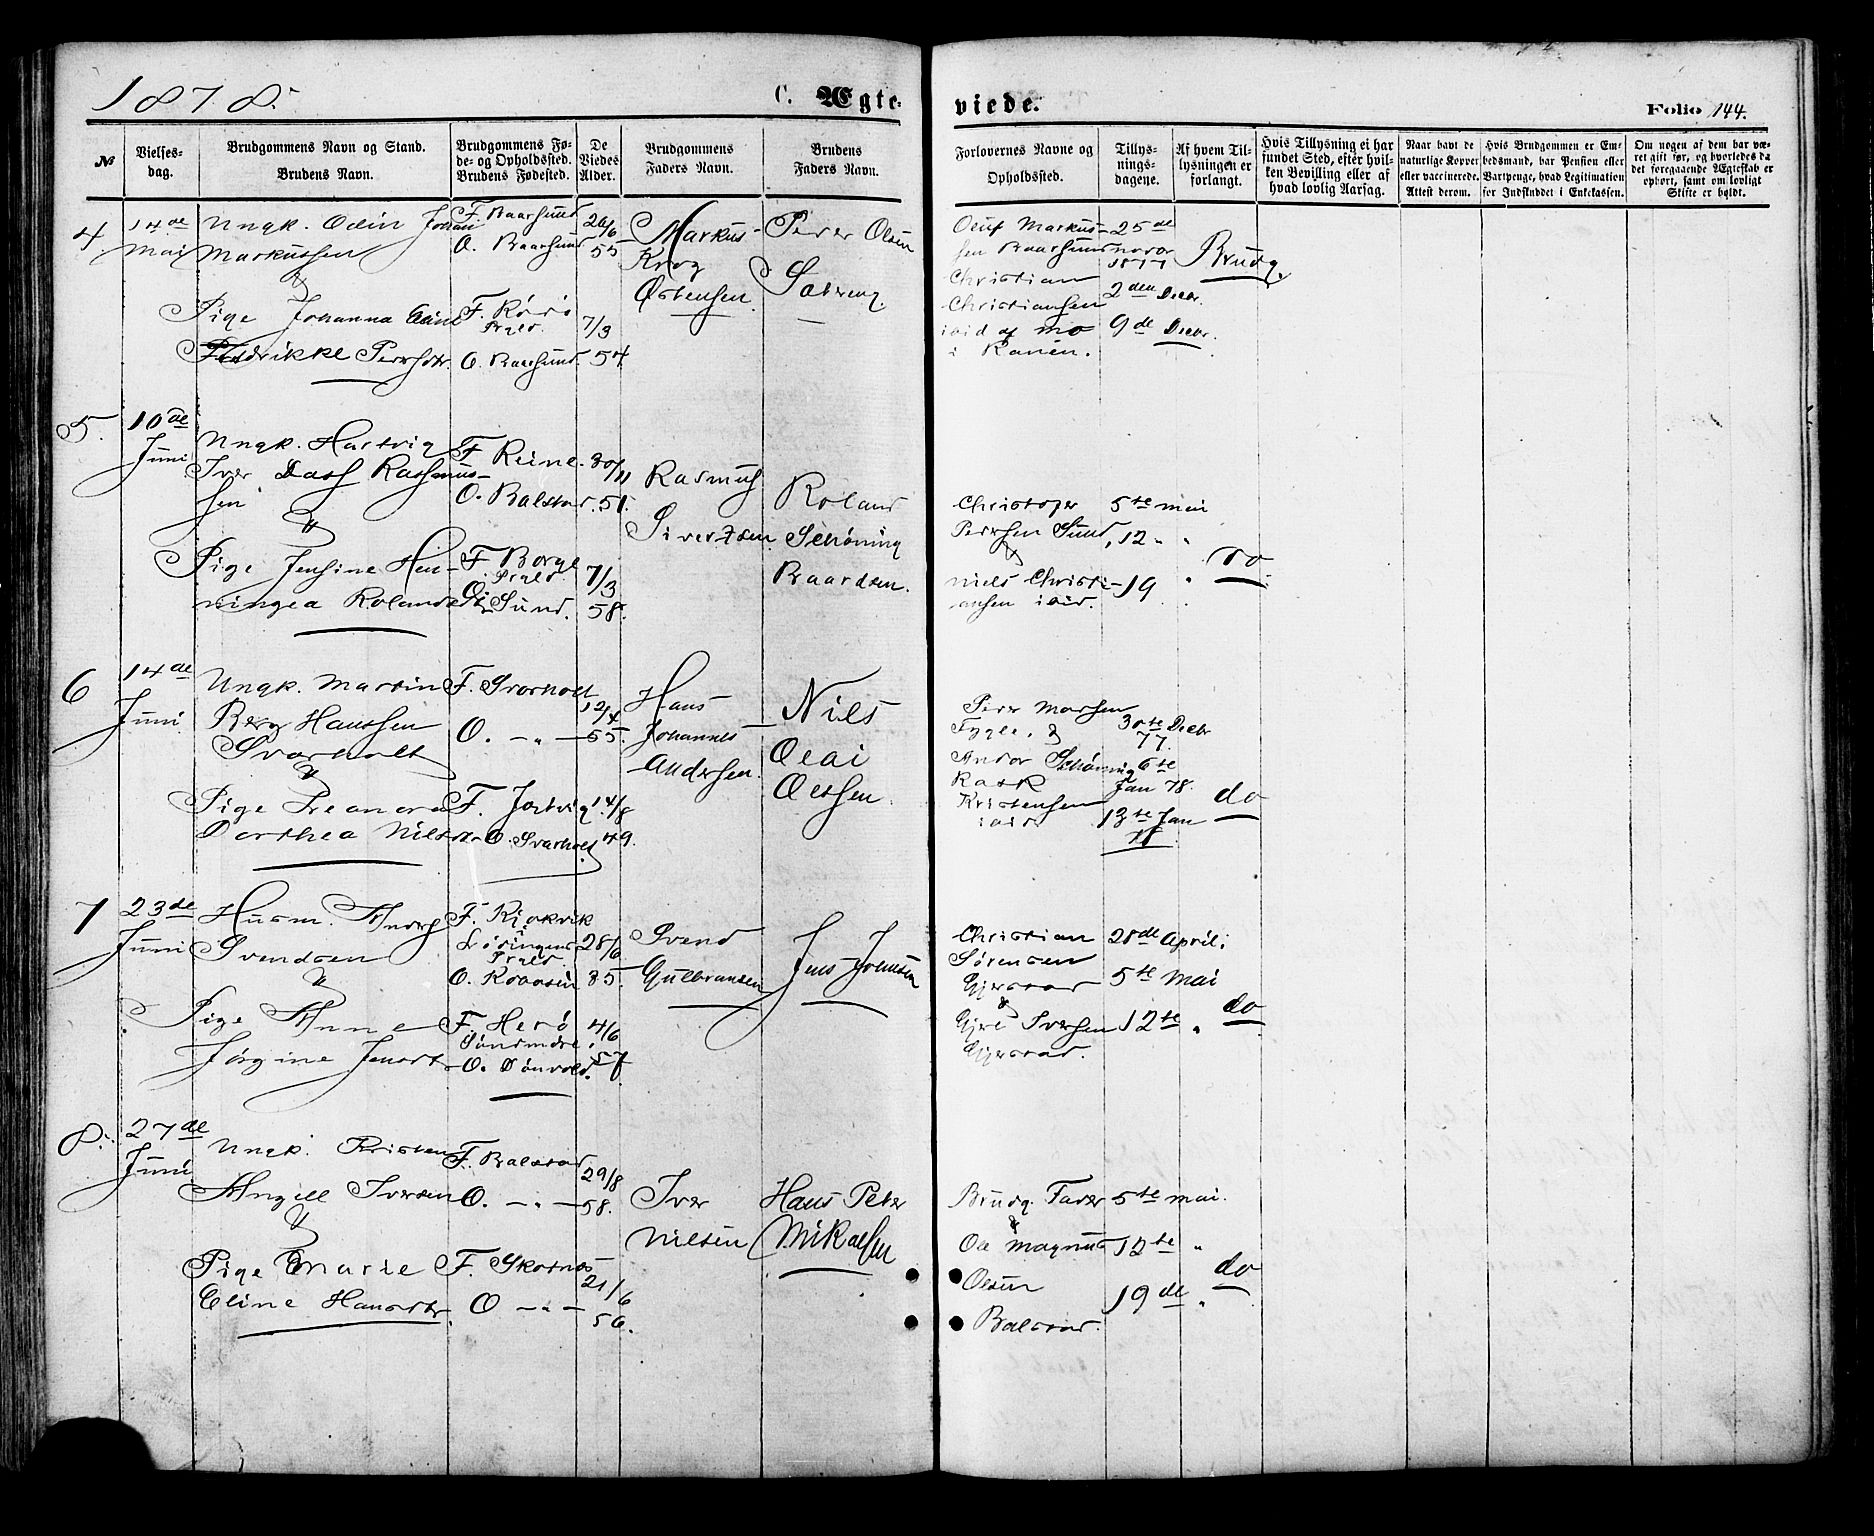 1878.
C. Ægte-
viede.
Folio 144.
№
Vielses-
dag.
Brudgommens Navn og Stand.
Brudens Navn.
Brudgommens Fø-
de- og Opholdsted.
Brudens Fødested.
De
Viedes
Alder.
Brudgommens
Faders Navn.
Brudens
Faders Navn.
Forlovernes Navne og
Opholdsted.
Tillys-
nings-
dagene.
Af hvem Til-
lysningen er
forlangt.
Hvis Tillysning ei har
fundet Sted, efter hvil-
ken Bevilling eller af
hvad lovlig Aarsag.
Naar havt de
naturlige Kopper
eller vaccinerede.
Attest derom.
Hvis Brudgommen er Em-
bedsmand, har Pension eller
Vartpenge, hvad Legitimation
for Indskuddet i Enkekassen.
Om nogen af dem har væ-
ret gift før, og hvorledes da
det foregaaende Ægteskab er
ophørt, samt om lovligt
Skifte er holdt.
4
14de
Mai
Ungk. Odin Johan
Markussen
&
Pige Johanna
Fredrikke Pedersdtr.
F. Baarsund
O. Baarsund
F. Rörö
O. Baarsund.
26/6
55
7/3
54
Markus
Krog
Østensen
Peder Olsen
Sætreng.
Oluf Markus-
sen Baarsund
Christian
Christiansen
ibid af Mo
i Ranen.
25de
Novbr
1877
2den Decbr.
9de Decbr.
Brudg.
5.
10de
Juni
Ungk. Hartvig
Iver Dass Rassmus-
sen
&
Pige Jensine Hen-
ningea Rolandsdtr
F Reine
O. Balstad.
F Borge
Prgld.
O. Sund.
30/11
51.
7/3
58.
Rasmus
Sivertsen
Roland
Schöning
Baardsen.
Christofer
Pedersen Sund,
&
Niels Christi-
ansen ibid.
5te Mai
12 " "
19 "
do
6
14de
Juni
Ungk. Martin
Berg Hanssen
Svarholt
&
Pige Leanora
Dorthea Nilsdtr
F. Svarholt
O. — " —
F. Jostvig
O. Svarholt
12/4
55.
14/8
49.
Hans
Johannes
Andersen.
Niels
Olai
Olssen
Peder Madsen
Fygle, &
Andor Schöning
Rask
Kristensen
ibid.
30te Decbr
77.
6te
Jan 78.
13te Jan
78
do
7
23de
Juni
Husm. Andors
Svendsen
&
Pige Anne
Jørgine Jensdt
F. Kjakvik
Lödingens
Prgld.
O.
F. Herö
Söndmöre.
O. Dönvold.
28/6
35.
4/6
57.
Svend
Gulbransen
Jens Johnsen
Christian
Sörensen
Gjerstad
&
Gjert Iversen
Gjerstad.
28de April.
5te Mai
12te "
do
8.
27de
Juni
Ungk. Kristen
Angell Iversen
&
Pige Marie
Eline Hansdtr.
F. Balstad
O. — " —
F. Skotnes
O — " —
29/8
58.
21/6
56.
Iver
Nilsen
Hans Peter
Mikalsen
Brudg. Fader
&
Ole Magnus
Olsen
Balstad.
5te Mai.
12te "
19de "
do